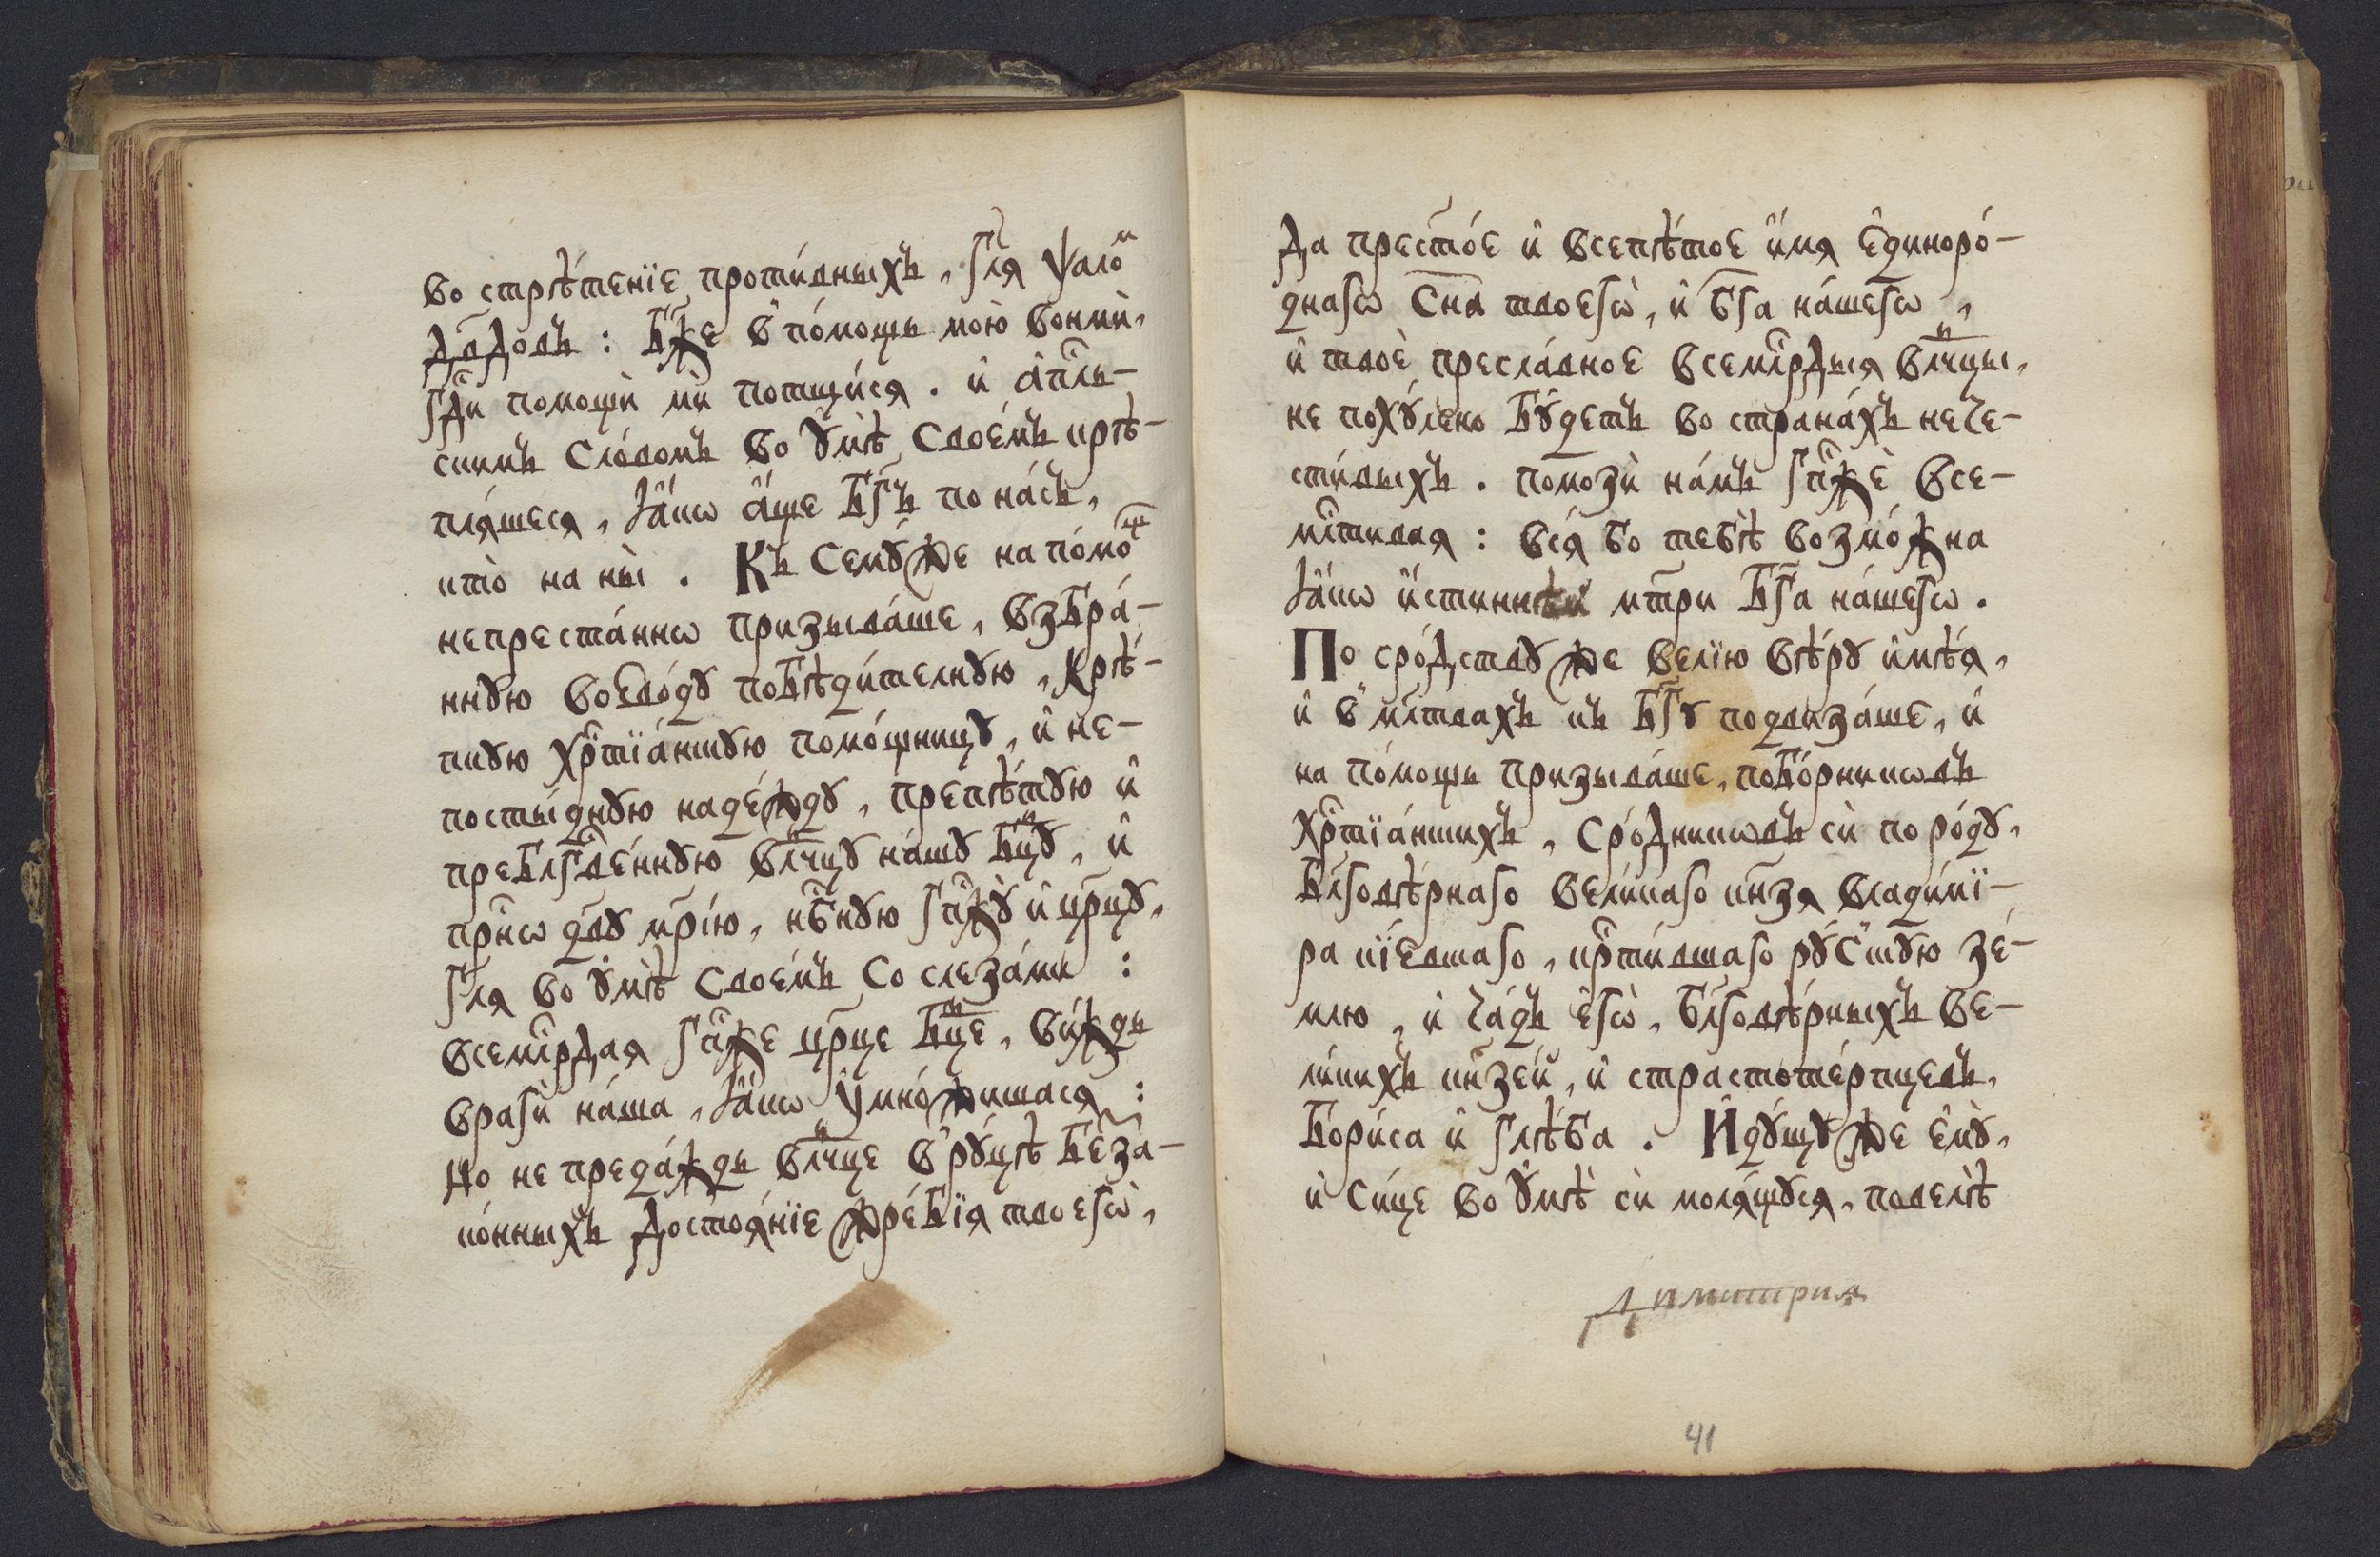 во стрѣ́тенїе проти́вныхъ, гл҃я ѱало́м
Дв҃Довъ : Бж҃е в̾ по́мощь мою̀ вонмѝ,
гдⷭ҇и помощѝ мѝ потщи́ся . и҆ а҆пⷭ҇ль-
скимъ сло́вомъ во ᲂу҆мѣ̀ своє́мъ крѣ-
пля́шеся, ꙗ҆́кѡ а҆́ще Бг҃ъ по на́съ,
кто̀ на ны̀ . Къ семꙋ́ же на по́мощ
непреста́ннѡ призыва́ше, взбра́-
ннꙋю воево́дꙋ побѣди́телнꙋю, крѣ́-
пкꙋю хрⷭ҇тїа́нскꙋю помо́щницꙋ, и҆ не-
посты́днꙋю наде́ждꙋ, препѣ́тꙋю и҆
преблгⷭ҇ве́ннꙋю влⷣчцꙋ на́шꙋ Бцⷣꙋ, и҆
прⷭ҇нѡ дв҃ꙋ мр҃і́ю, нбⷭ҇нꙋю гпⷭ҇жꙋ̀ и҆ цр҃цꙋ,
гл҃я во ᲂу҆мѣ̀ своє́мъ со слеза́ми :
всемлⷭ҇рдая гпⷭ҇же цр҃це Бцⷣе, ви́ждь
врагѝ на́ша, ꙗ҆́кѡ ᲂу҆мно́жишася :
Но не преда́ждь влⷣчце в̾ рꙋ́цѣ беза-
ко́нныхъ достоя́нїе жре́бїя твоегѡ̀,
Да прест҃о́е и҆ всепѣ́тое и҆́мя є҆диноро́-
днагѡ Сн҃а твоегѡ̀, и҆ бг҃а на́шегѡ,
и҆ твоѐ пресла́вное всемлⷭ҇рдыя влⷣчцы,
не похꙋ́лено бꙋ́детъ во страна́хъ нече-
сти́выхъ . помозѝ на́мъ гпⷭ҇жѐ все-
млⷭ҇тивая : вся̑ бо тебѣ̀ возмо́жна
ꙗ҆́кѡ и҆́стиннѣй мт҃ри Бг҃а на́шегѡ .
По сро́дствꙋ же ве́лїю вѣ́рꙋ и҆мѣ́я,
и҆ в̾ млт҃вахъ къ Бг҃ꙋ подвиза́ше, и҆
на по́мощь призыва́ше, побо́рникѡвъ
хрⷭ҇тїа́нскихъ, сро́дникѡвъ сѝ по ро́дꙋ,
Блг҃овѣ́рнаго вели́каго кн҃зя влади́мї-
ра кїевскаго, крⷭ҇ти́вшаго рꙋ́сскꙋю зе́-
млю, и҆ ча́дъ є҆гѡ̀, блг҃овѣ́рныхъ ве-
ли́кихъ кн҃зе́й, и҆ страстоте́рпцевъ,
бори́са и҆ глѣ́ба . И҆дꙋ́щꙋ же є҆мꙋ̀,
и҆ си́це во ᲂу҆мѣ̀ сѝ моля́щꙋся, повелѣ̀
Димитрия
41